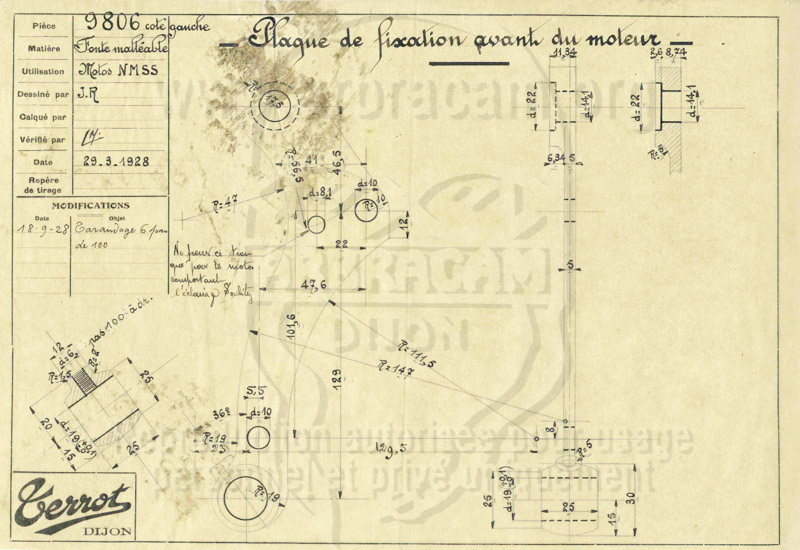 Pièce 9806 coté gauche
Matière Fonte malléable
Utilisation Motos NMSS
Dessiné par J.R
Calqué par
Vérifié par
Date 29.3.1928
Repère de tirage
MODIFICATIONS
Date Objet
18-9-28 Taraudage 6 pas de 100
Plaque de fixation avant du moteur
R=
17,5
41
R=56,5
46,5
R=47
d=8,1
d=10
R=10
12
22
47,6
Ne percer ce trou
que pour les motos
comportant
l'éclairage
101,6
R=111,5
R=147
129
5,5
36
d=10
R=19
25
129,5
R=19
8
R=6
11,34
2,6 8,74
d=22
d=14,1
d=22
d=14,1
6,34 5
R=
5
26
25
15
30
pas 100-à dr.
12
d=6
R=2
R=1,5
25
20
15
25
Terrot
DIJON
www.abpracam.org
ABPRACAM
DIJON
Reproduction autorisée pour usage
personnel et privé uniquement